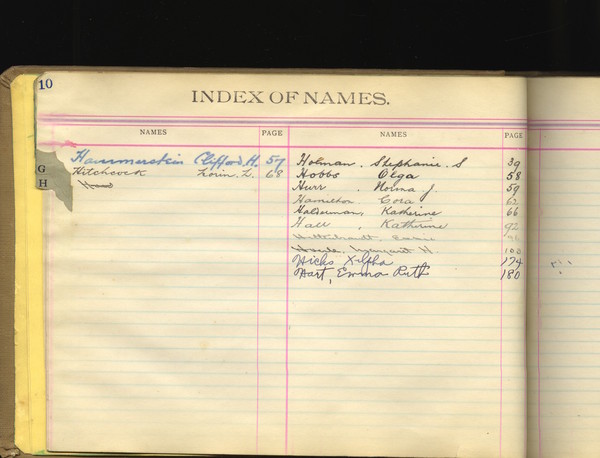 10
INDEX OF NAMES.
NAMES PAGE
Hammerstein Clifford H. 57
Hitchcock Lorin L. 68
G
H
NAMES PAGE
Holman, Stephanie S 39
Hobbs Olga 58
Hurr, Norma J. 59
Hamilton, Cora 62
Halderman, Katherine 66
Hall, Katherine 92
Margaret H. 100
Hicks Xilpha 174
Hart, Emma Ruth 180